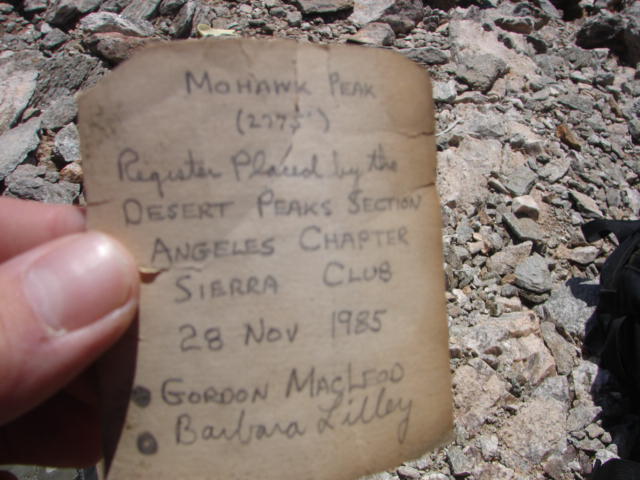 MOHAWK PEAK
(2775')
Register Placed by the
DESERT PEAKS SECTION
ANGELES CHAPTER
SIERRA CLUB
28 NOV 1985
GORDON MACLEOD
Barbara Lilley